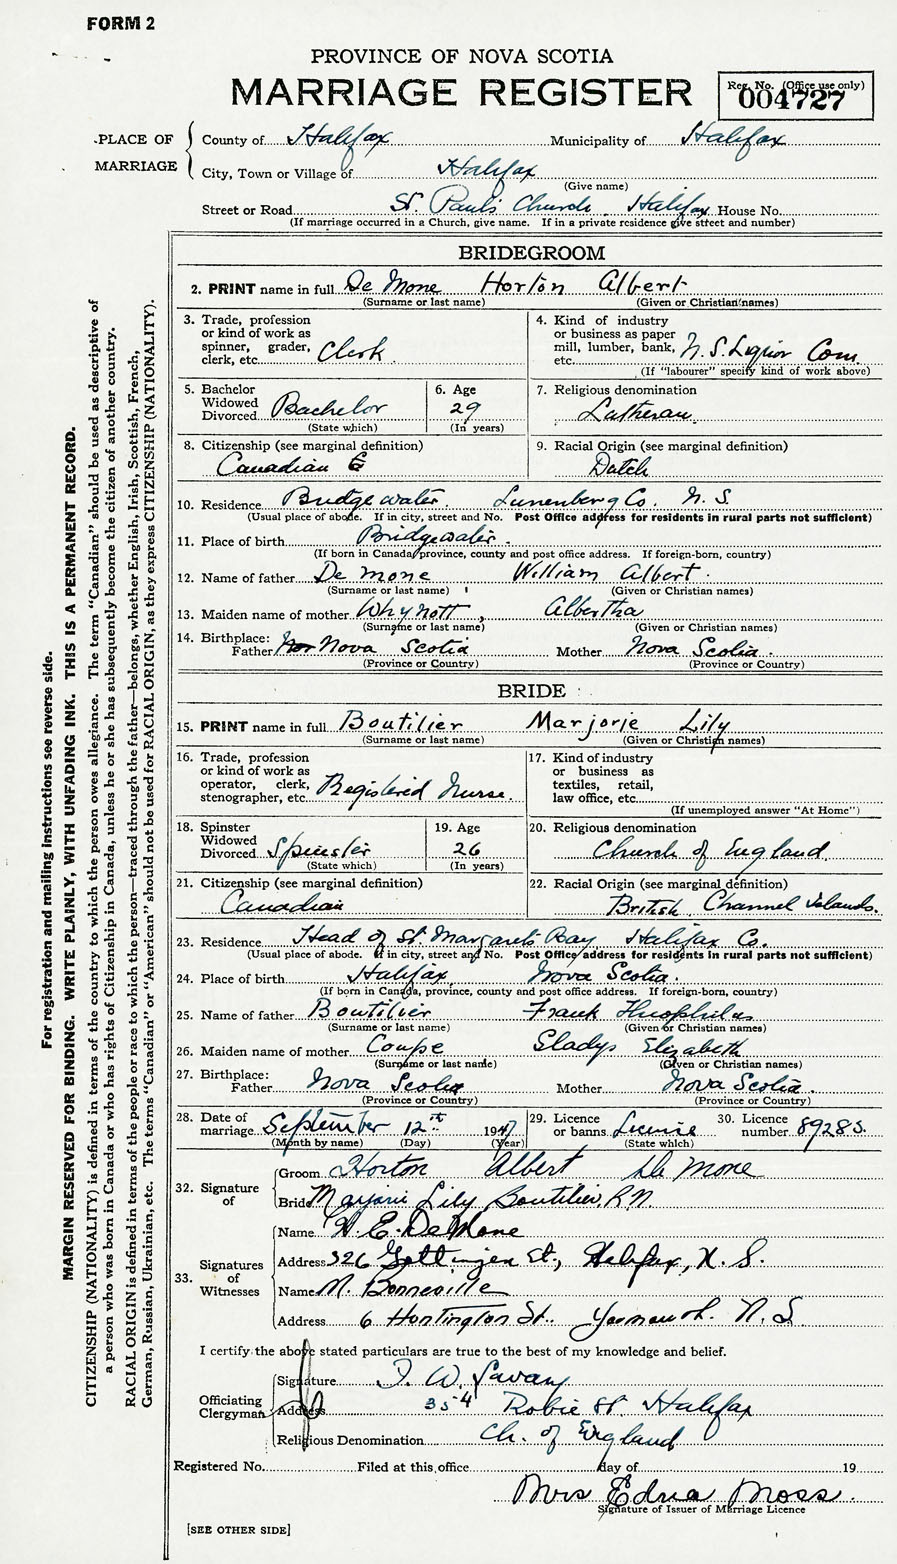 FORM 2
PROVINCE OF NOVA SCOTIA
MARRIAGE REGISTER
Reg. No. (Office use only)
004727
PLACE OF MARRIAGE
County of Halifax Municipality of Halifax
City, Town or Village of Halifax
(Give name)
Street or Road St. Paul's Church, Halifax House No.
(If marriage occurred in a Church, give name. If in a private residence give street and number)
BRIDEGROOM
2. PRINT name in full De Mone Horton Albert
(Surname or last name) (Given or Christian names)
3. Trade, profession or kind of work as spinner, grader, clerk, etc. Clerk
4. Kind of industry or business as paper mill, lumber, bank, etc. N.S. Liquor Com
(If "labourer" specify kind of work above)
5. Bachelor Widowed Divorced Bachelor
(State which)
6. Age 29
(In years)
7. Religious denomination
Lutheran
8. Citizenship (see marginal definition)
Canadian
9. Racial Origin (see marginal definition)
Dutch
10. Residence Bridgewater Lunenberg Co. N.S.
(Usual place of abode. If in city, street and No. Post Office address for residents in rural parts not sufficient)
11. Place of birth Bridgewater.
(If born in Canada, province, county and post office address. If foreign-born, country)
12. Name of father De Mone William Albert.
(Surname or last name) (Given or Christian names)
13. Maiden name of mother Whynott, Albertha
(Surname or last name) (Given or Christian names)
14. Birthplace: Father Nova Scotia Mother Nova Scotia.
(Province or Country) (Province or Country)
BRIDE
15. PRINT name in full Boutilier Marjorie Lily
(Surname or last name) (Given or Christian names)
16. Trade, profession or kind of work as operator, clerk, stenographer, etc. Registered Nurse.
17. Kind of industry or business as textiles, retail, law office, etc.
(If unemployed answer "At Home")
18. Spinster Widowed Divorced Spinster
(State which)
19. Age 26
(In years)
20. Religious denomination
Church of England
21. Citizenship (see marginal definition)
Canadian
22. Racial Origin (see marginal definition)
British Channel Islands.
23. Residence Head of St. Margarets Bay Halifax Co.
(Usual place of abode. If in city, street and No. Post Office address for residents in rural parts not sufficient)
24. Place of birth Halifax, Nova Scotia.
(If born in Canada, province, county and post office address. If foreign-born, country)
25. Name of father Boutilier Frank Theophilus
(Surname or last name) (Given or Christian names)
26. Maiden name of mother Coupe Gladys Elizabeth
(Surname or last name) (Given or Christian names)
27. Birthplace: Father Nova Scotia Mother Nova Scotia.
(Province or Country) (Province or Country)
28. Date of marriage September 12th 1947
(Month by name) (Day) (Year)
29. Licence or banns Licence
(State which)
30. Licence number 89285
32. Signature of
Groom Horton Albert De Mone
Bride Marjorie Lily Boutilier, R.N.
33. Signatures of Witnesses
Name E. DeMone
Address 326 Gottingen St., Halifax, N.S.
Name M. Bonneville
Address 6 Huntington St. Yarmouth N.S.
I certify the above stated particulars are true to the best of my knowledge and belief.
Officiating Clergyman
Signature W. Savary
Address 354 Robie St. Halifax
Religious Denomination Ch. of England
Registered No. Filed at this office day of 19
Mrs Edna Moss.
Signature of Issuer of Marriage Licence
[SEE OTHER SIDE]
For registration and mailing instructions see reverse side.
MARGIN RESERVED FOR BINDING. WRITE PLAINLY, WITH UNFADING INK. THIS IS A PERMANENT RECORD.
CITIZENSHIP (NATIONALITY) is defined in terms of the country to which the person owes allegiance. The term "Canadian" should be used as descriptive of
a person who was born in Canada or who has rights of Citizenship in Canada, unless he or she has subsequently become the citizen of another country.
RACIAL ORIGIN is defined in terms of the people or race to which the person—traced through the father—belongs, whether English, Irish, Scottish, French,
German, Russian, Ukrainian, etc. The terms "Canadian" or "American" should not be used for RACIAL ORIGIN, as they express CITIZENSHIP (NATIONALITY).